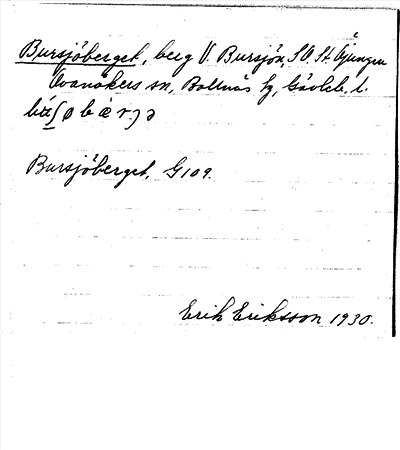 Bursjöberget, berg V. Bursjön, S.O. St. Öjungen
Ovanåkers sn, Bollnäs tg, Gävleb. l.
Bursjöberget. G109.
Erik Eriksson 1930.